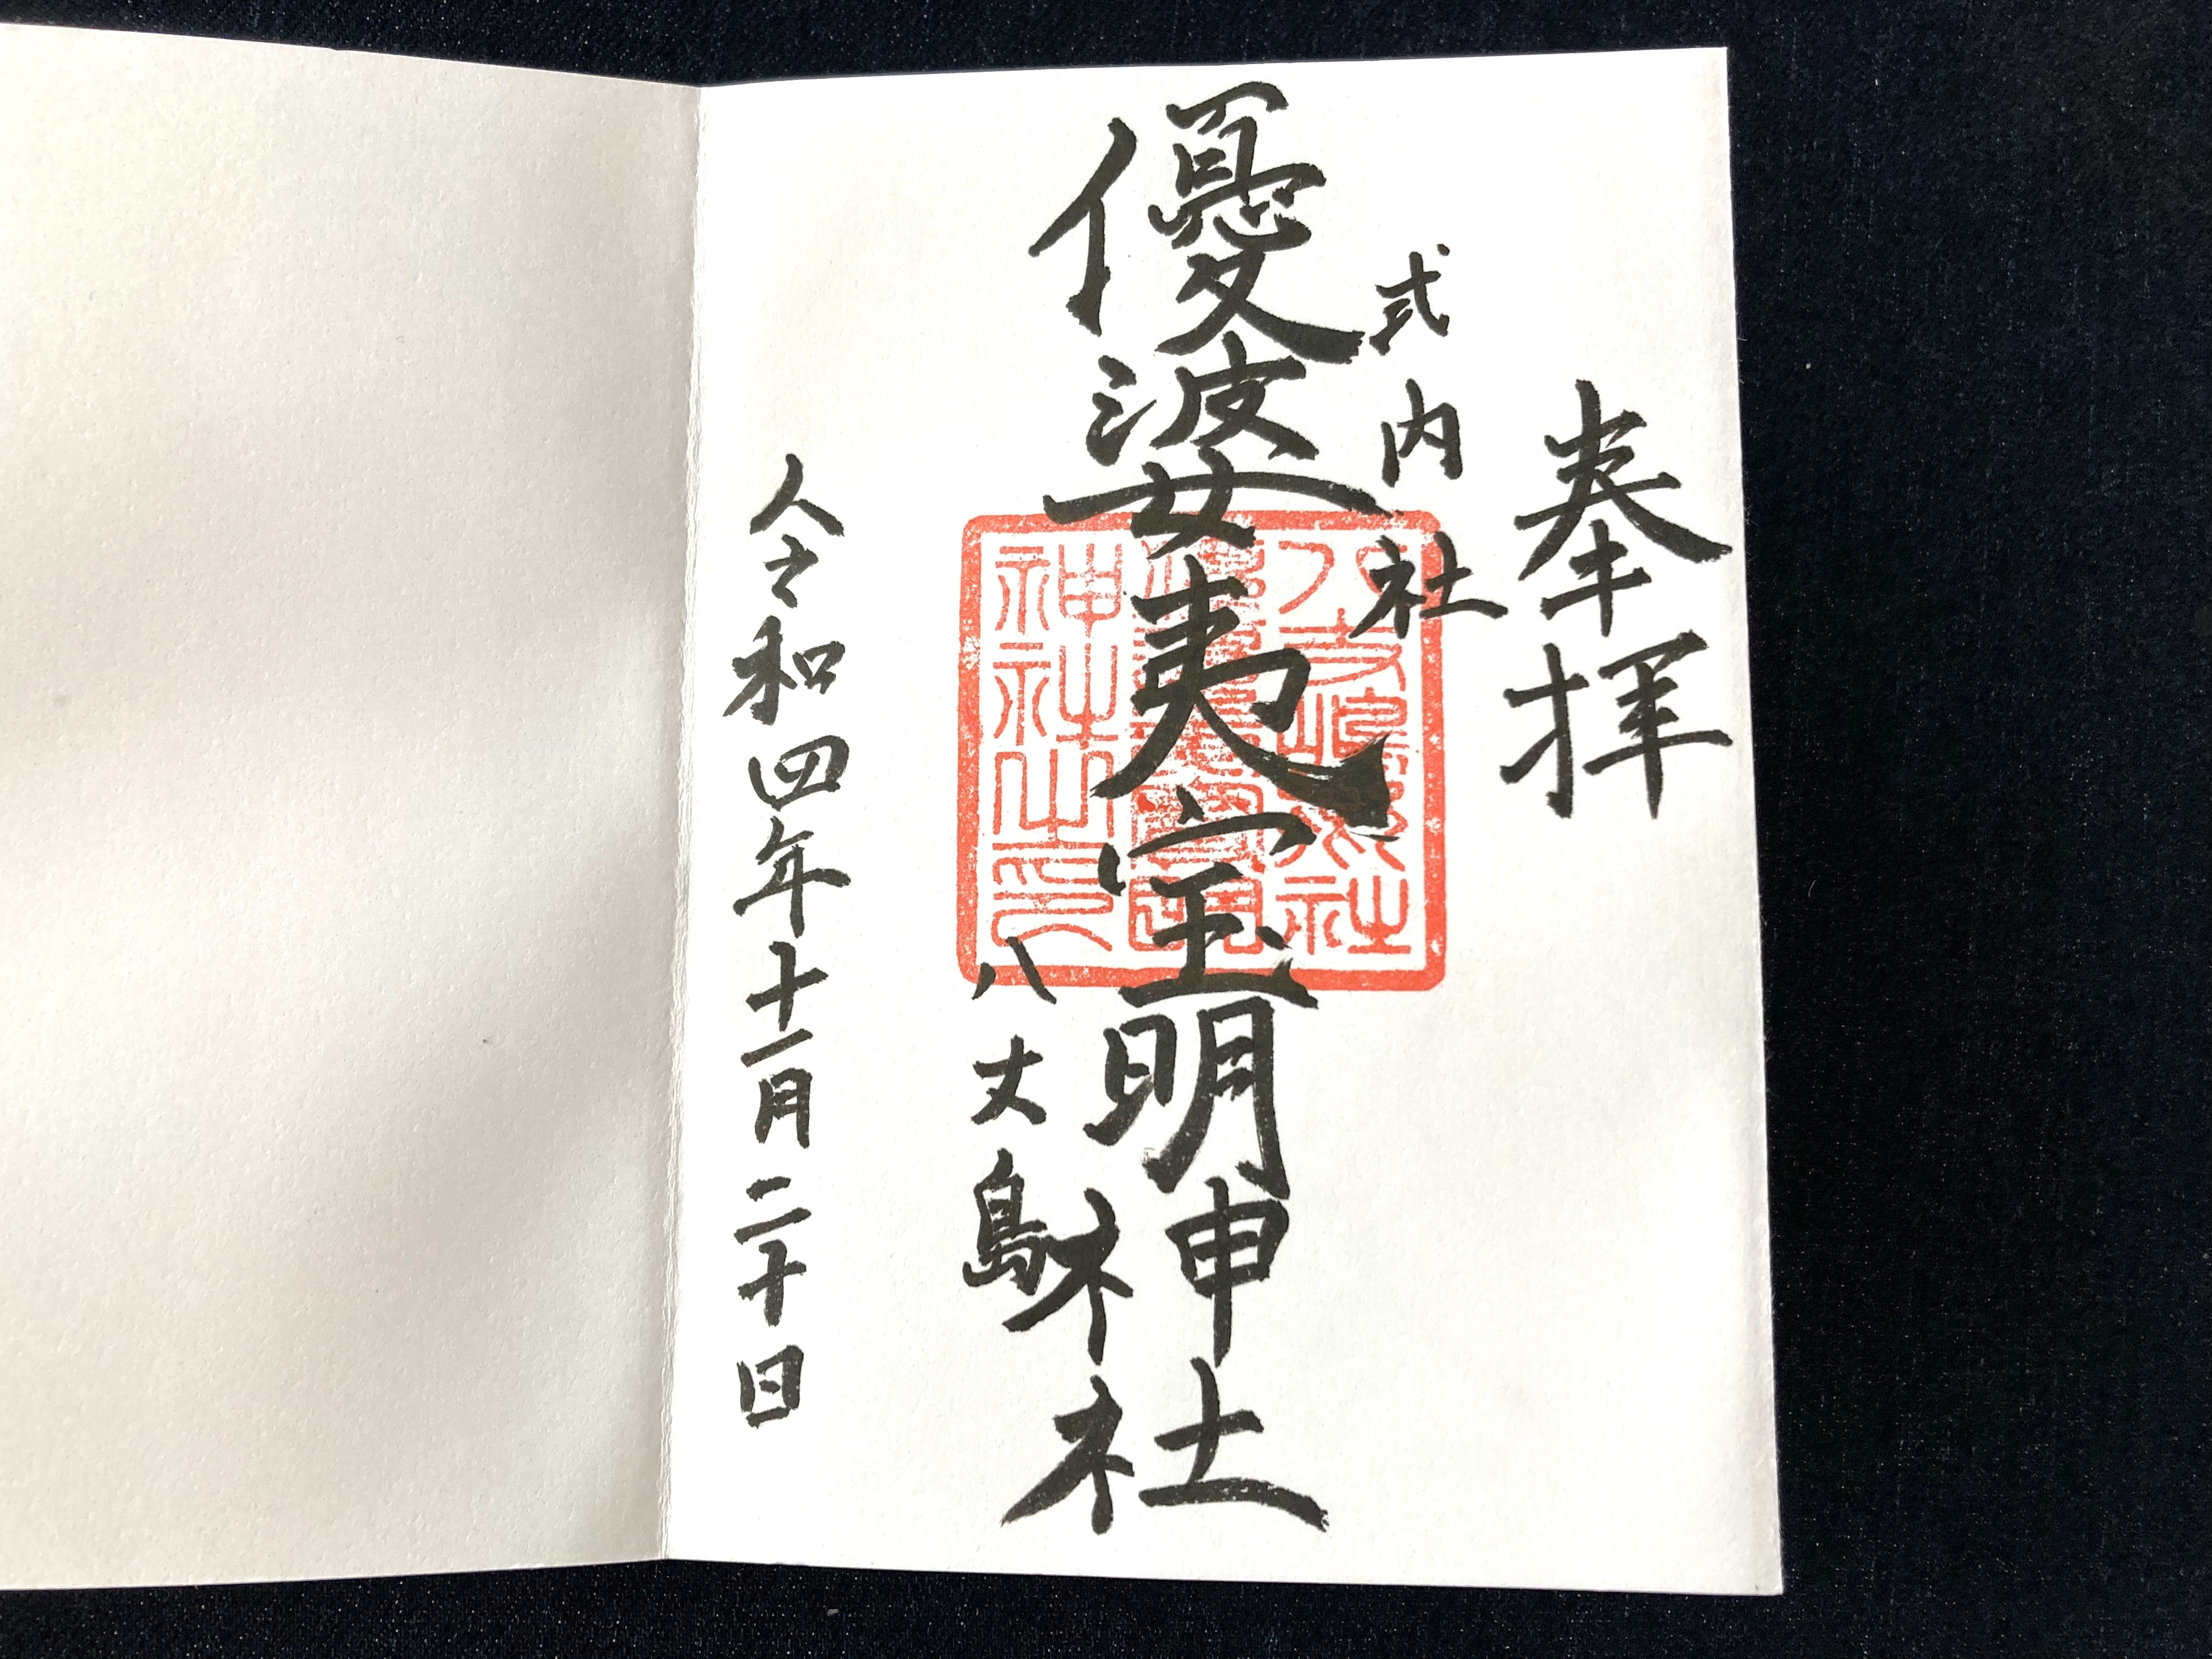 奉拝
式内社
優婆夷宝明神社
八丈島
令和四年十一月二十日
神社之印